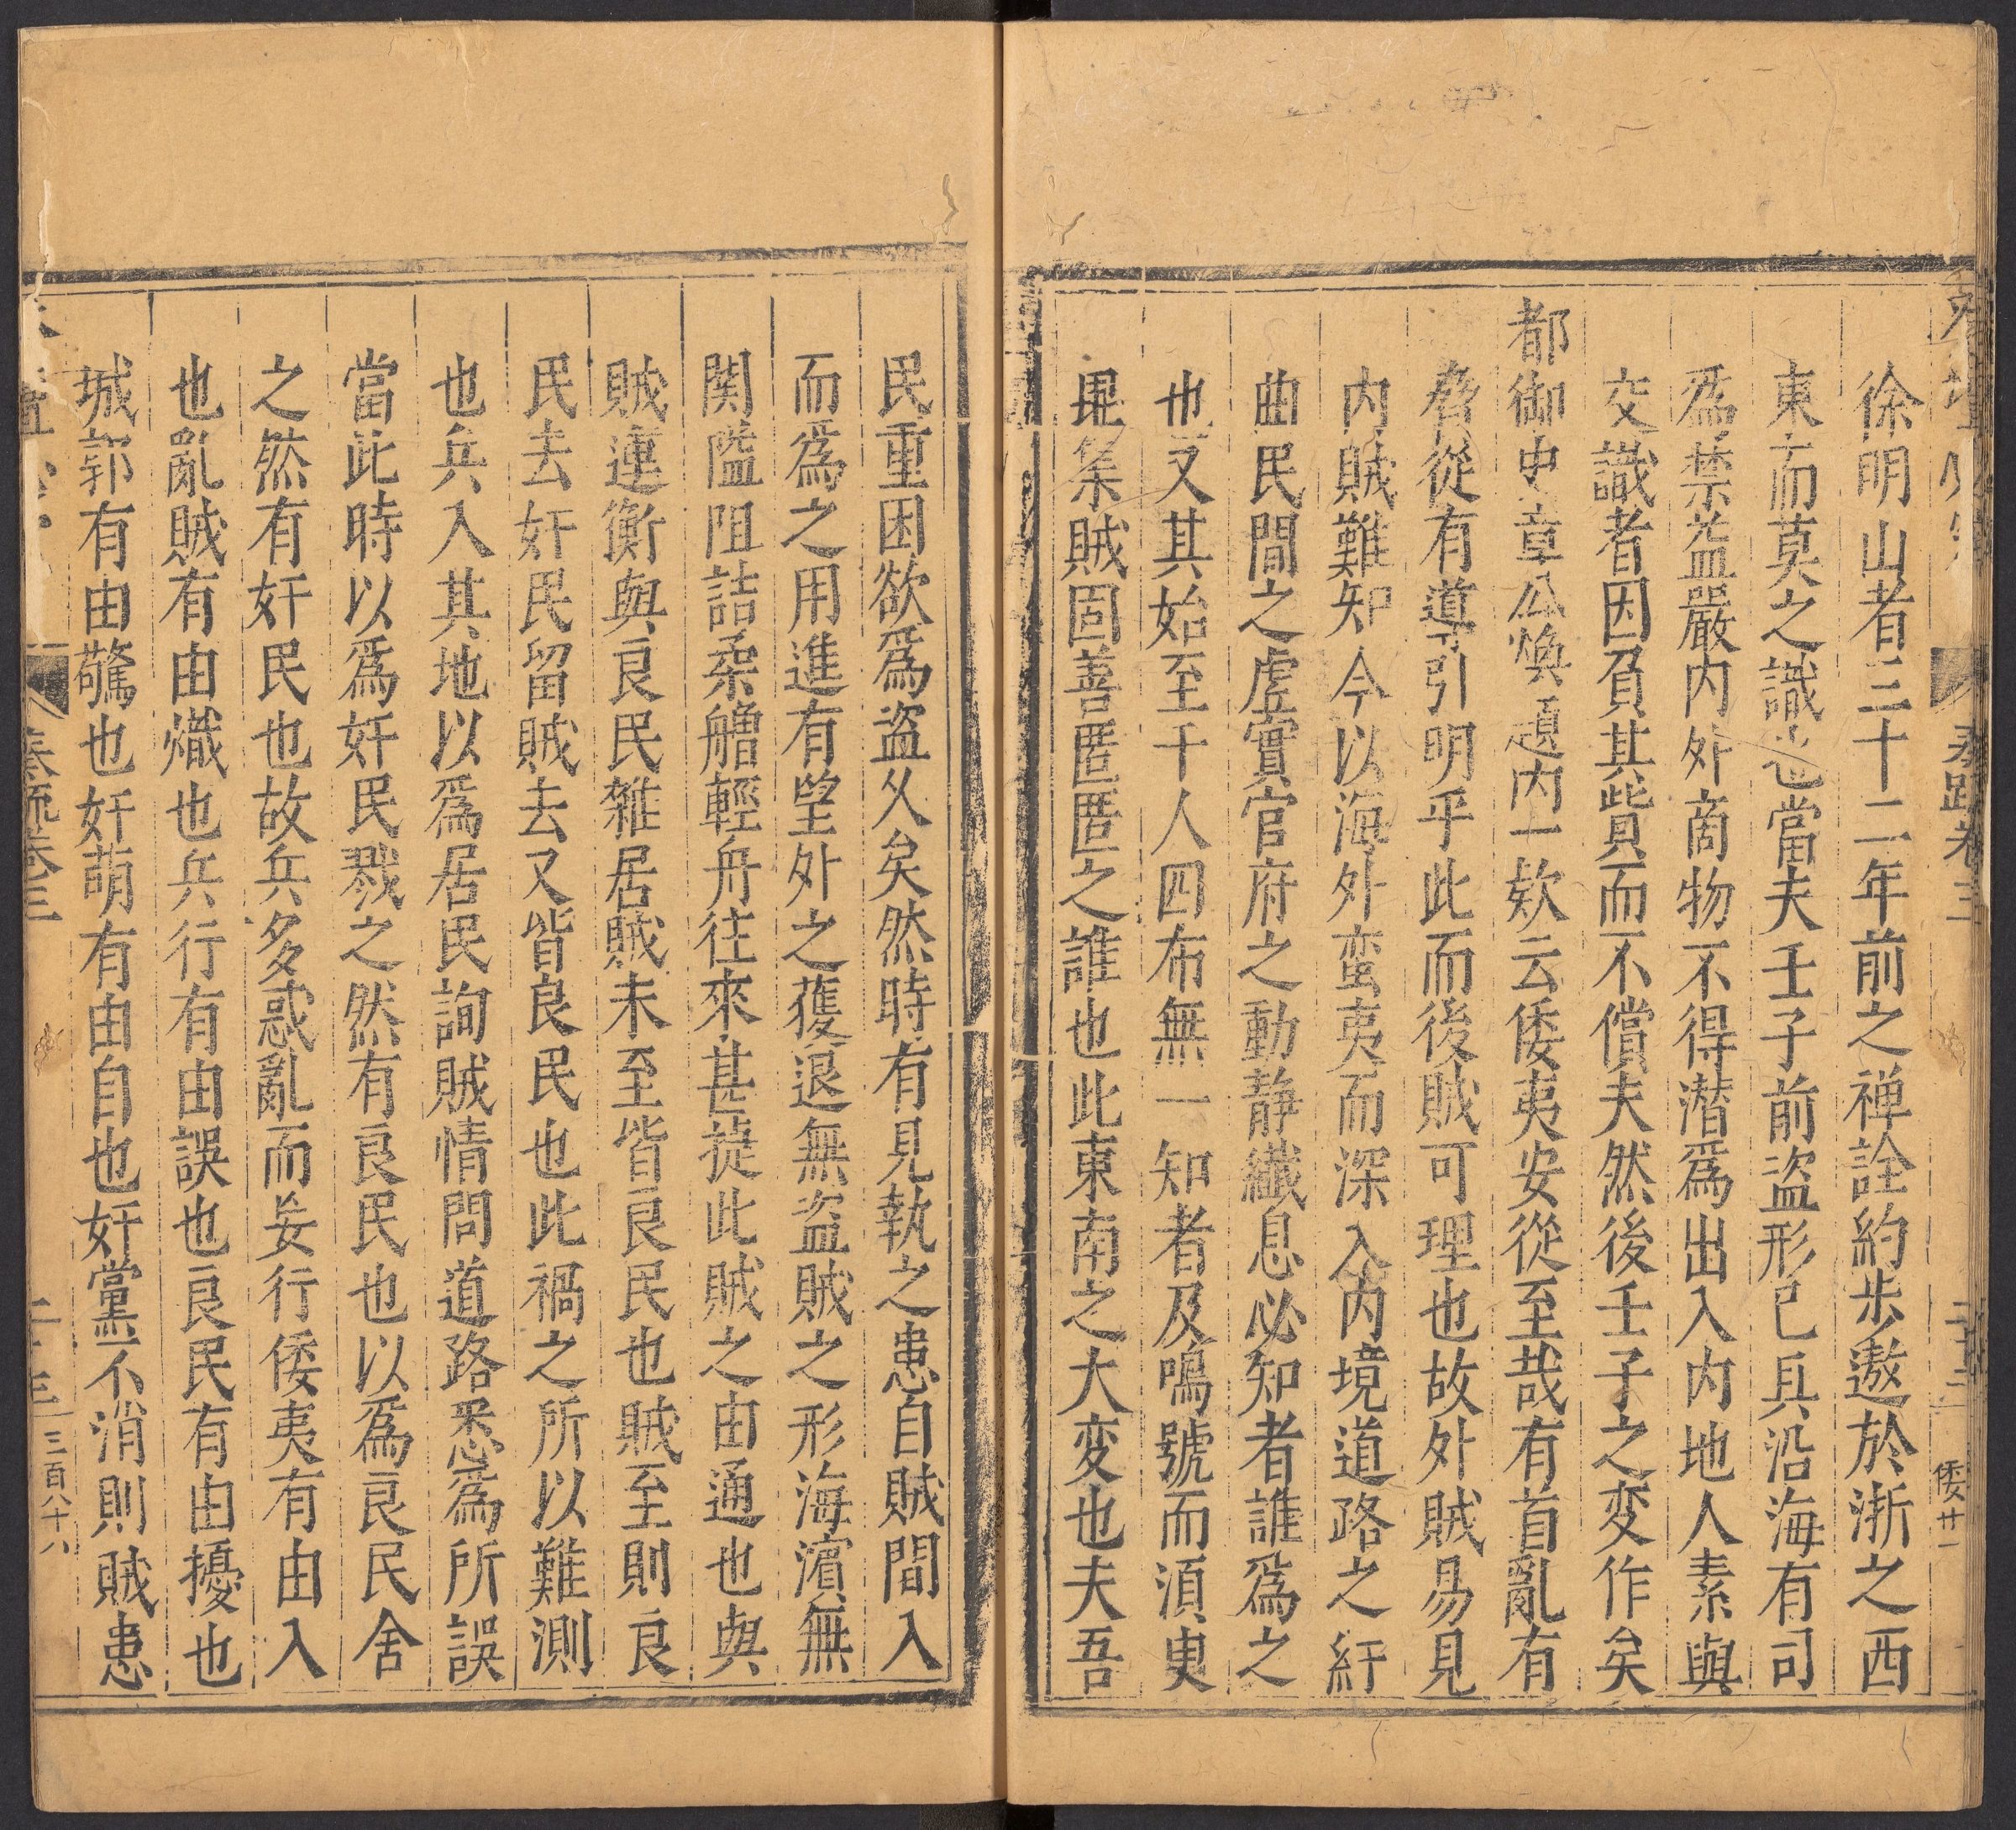 徐明山者三十二年前之禅詮約步遨於浙之西
東而莫之識也當夫壬子前盗形已具沿海有司
爲禁益嚴内外商物不得潛爲出入内地人素與
交識者因負其貲而不償夫然後壬子之変作矣
都御史章公焕題内一欵云倭夷安從至哉有首亂有
脅從有導引明乎此而後賊可理也故外賊易見
内賊難知今以海外蛮夷而深入内境道路之紆
曲民間之虛實官府之動静纖息必知者誰爲之
也又其始至千人四布無一知者及鳴號而湏臾
畢集賊固善匿匿之誰也此東南之大変也夫吾
奏疏卷三
倭廿一
民重困欲爲盗久矣然時有見執之患自賊間入
而爲之用進有望外之獲退無盗賊之形海濵無
関隘阻詰柔艣輕舟往來甚㨗此賊之由通也與
賊連衡與良民雜居賊未至皆良民也賊至則良
民去奸民留賊去又皆良民也此禍之所以難測
也兵入其地以爲居民詢賊情問道路悉爲所誤
當此時以爲奸民戮之然有良民也以爲良民舍
之然有奸民也故兵多惑亂而妄行倭夷有由入
也亂賊有由熾也兵行有由誤也良民有由擾也
城郭有由驚也奸萌有由自也奸黨不消則賊患
奏疏卷三
二十三
三百八十八